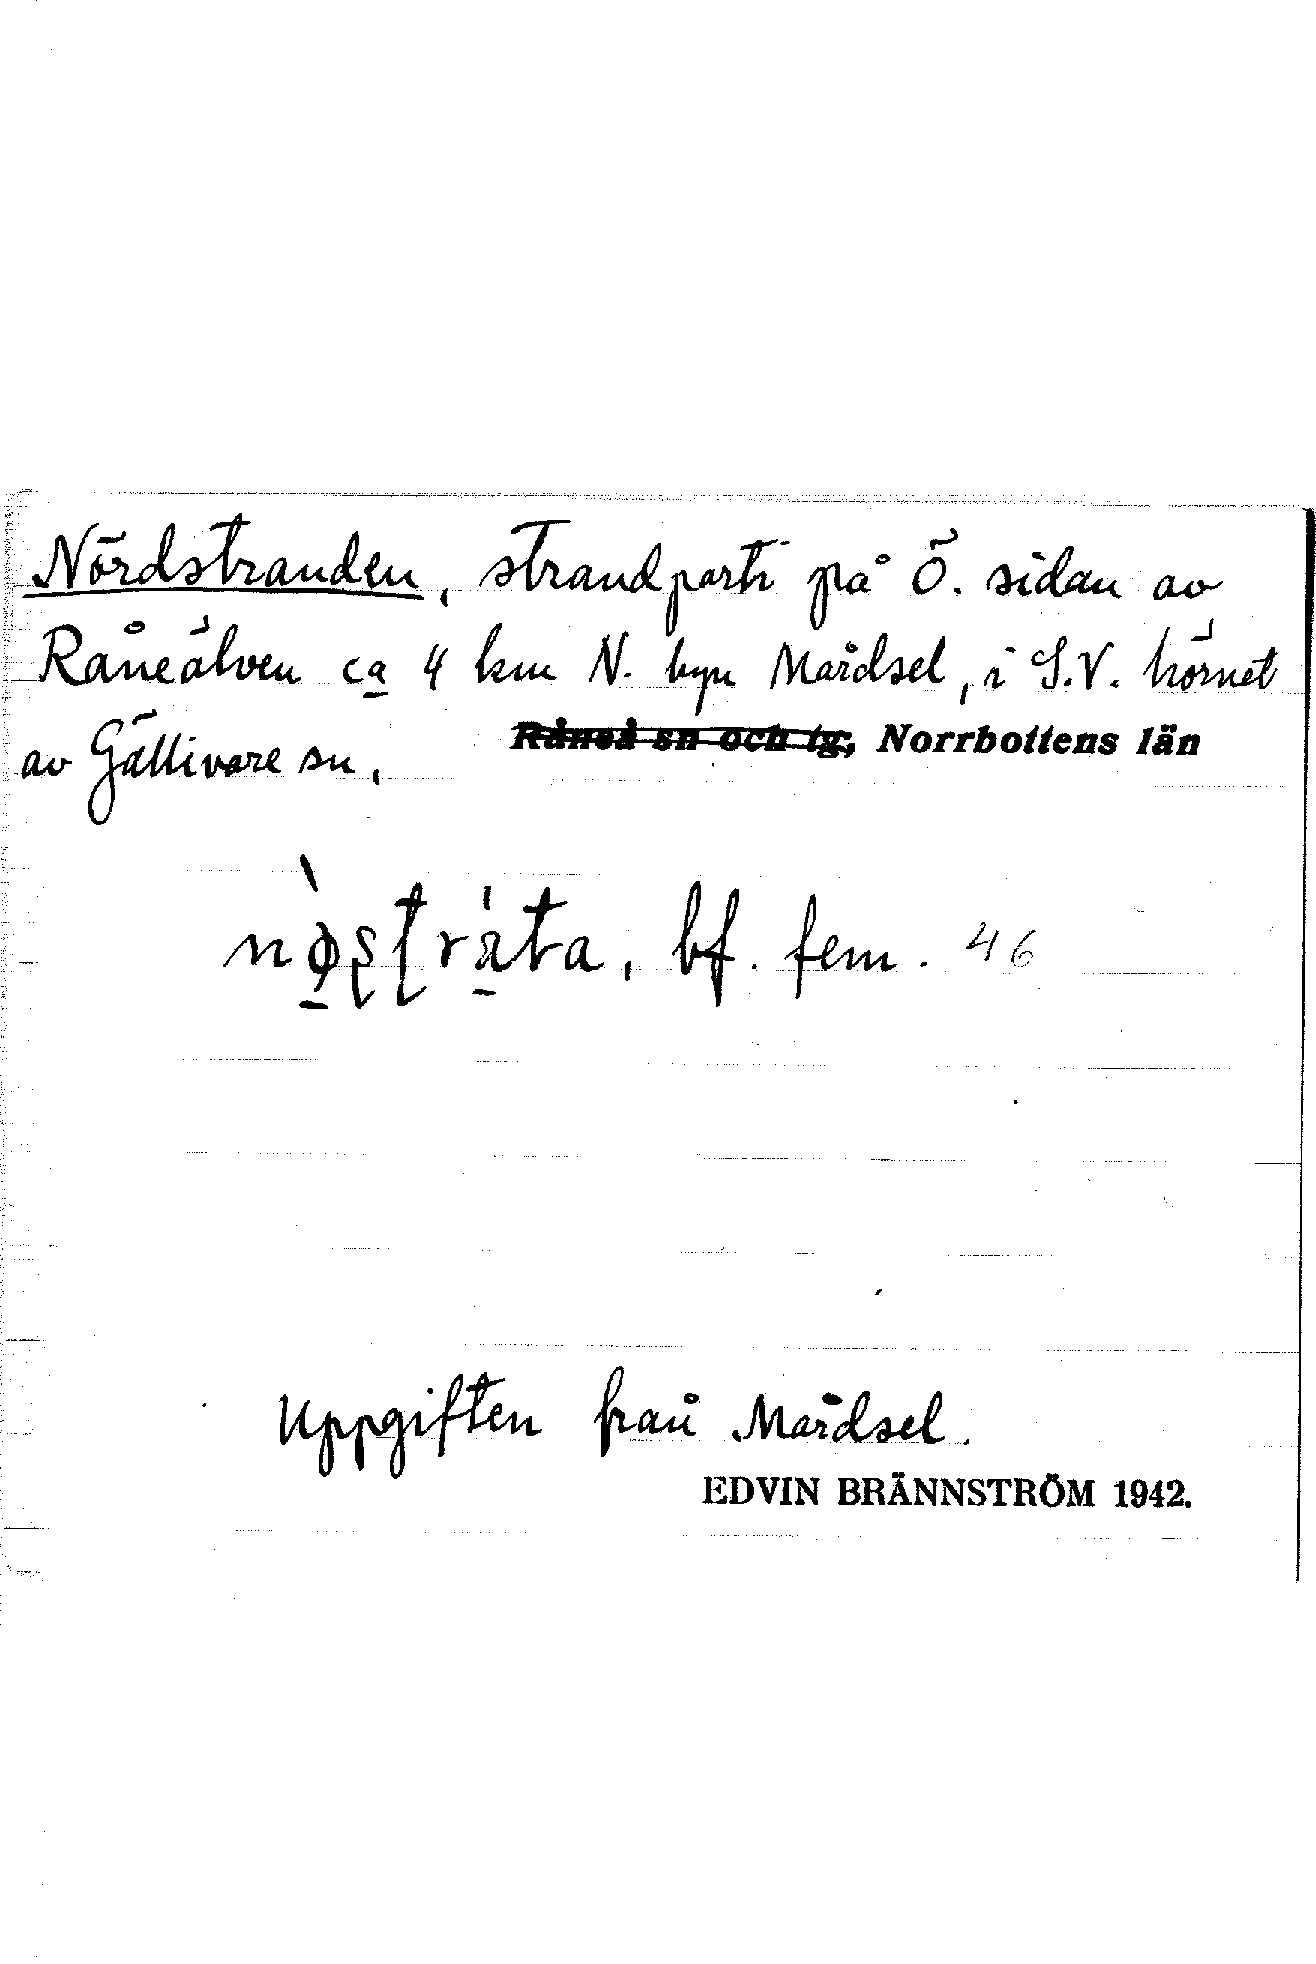 Nördstranden, strandparti på Ö. sidan av
Råneälven ca 4 km N. byn Mårdsel, i S.V. hörnet
av Gällivare sn,
Råneå sn och tg, Norrbottens län
bf. fem. 46
Uppgiften från Mårdsel.
EDVIN BRÄNNSTRÖM 1942.